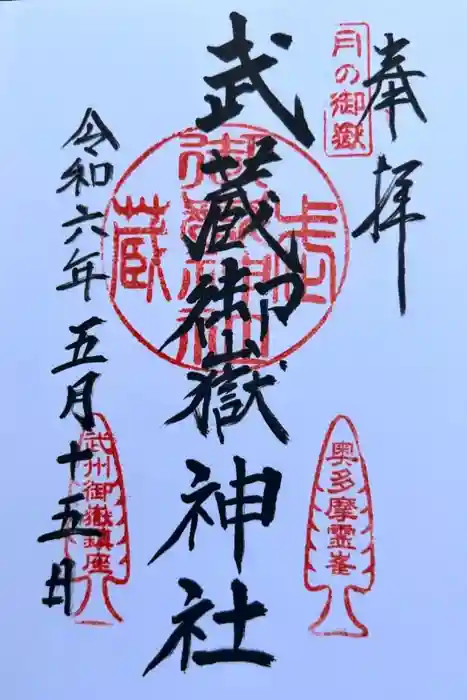 奉拝
月の御嶽
武蔵御嶽神社
武蔵
御嶽神社
令和六年五月十五日
奥多摩霊峯
武州御嶽鎮座